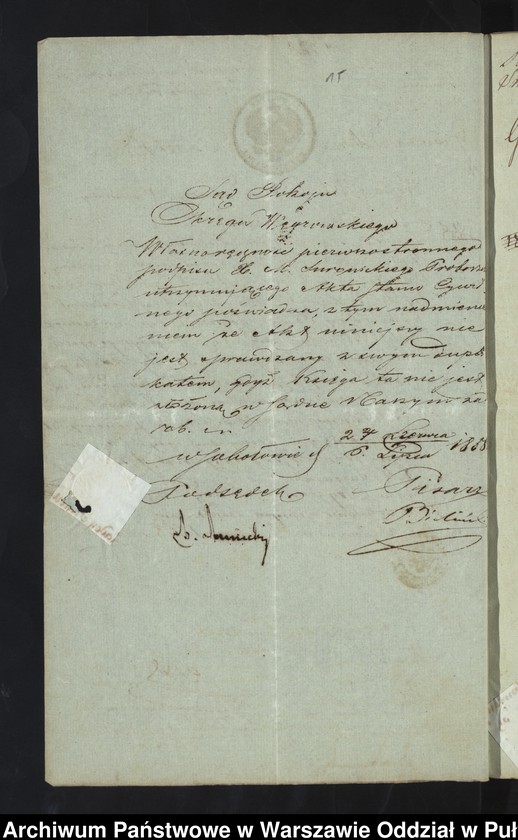 15
Sąd Pokoju
Okręgu Węgrowskiego
Własnoręczność pierwostronnego
podpisu X. M. Proboszcza
utrzymującego Akta Stanu Cywil
nego poświadcza, z tym nadmienie
niem że Akt niniejszy nie
jest sprawdzany z swym Dupli
katem, gdyż Księga ta nie jest
złożoną w Sądzie Naszym za
rok b.
w Sokołowie d 24 Czerwca
6 Lipca 1858
Podsędek Pisarz
Archiwum Państwowe w Warszawie Oddział w Puł